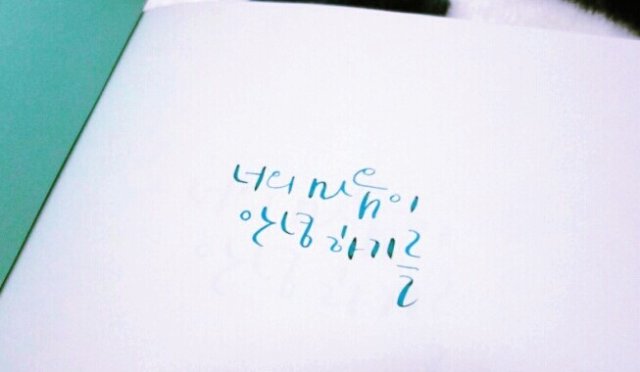 너의 마음이
안녕하기를